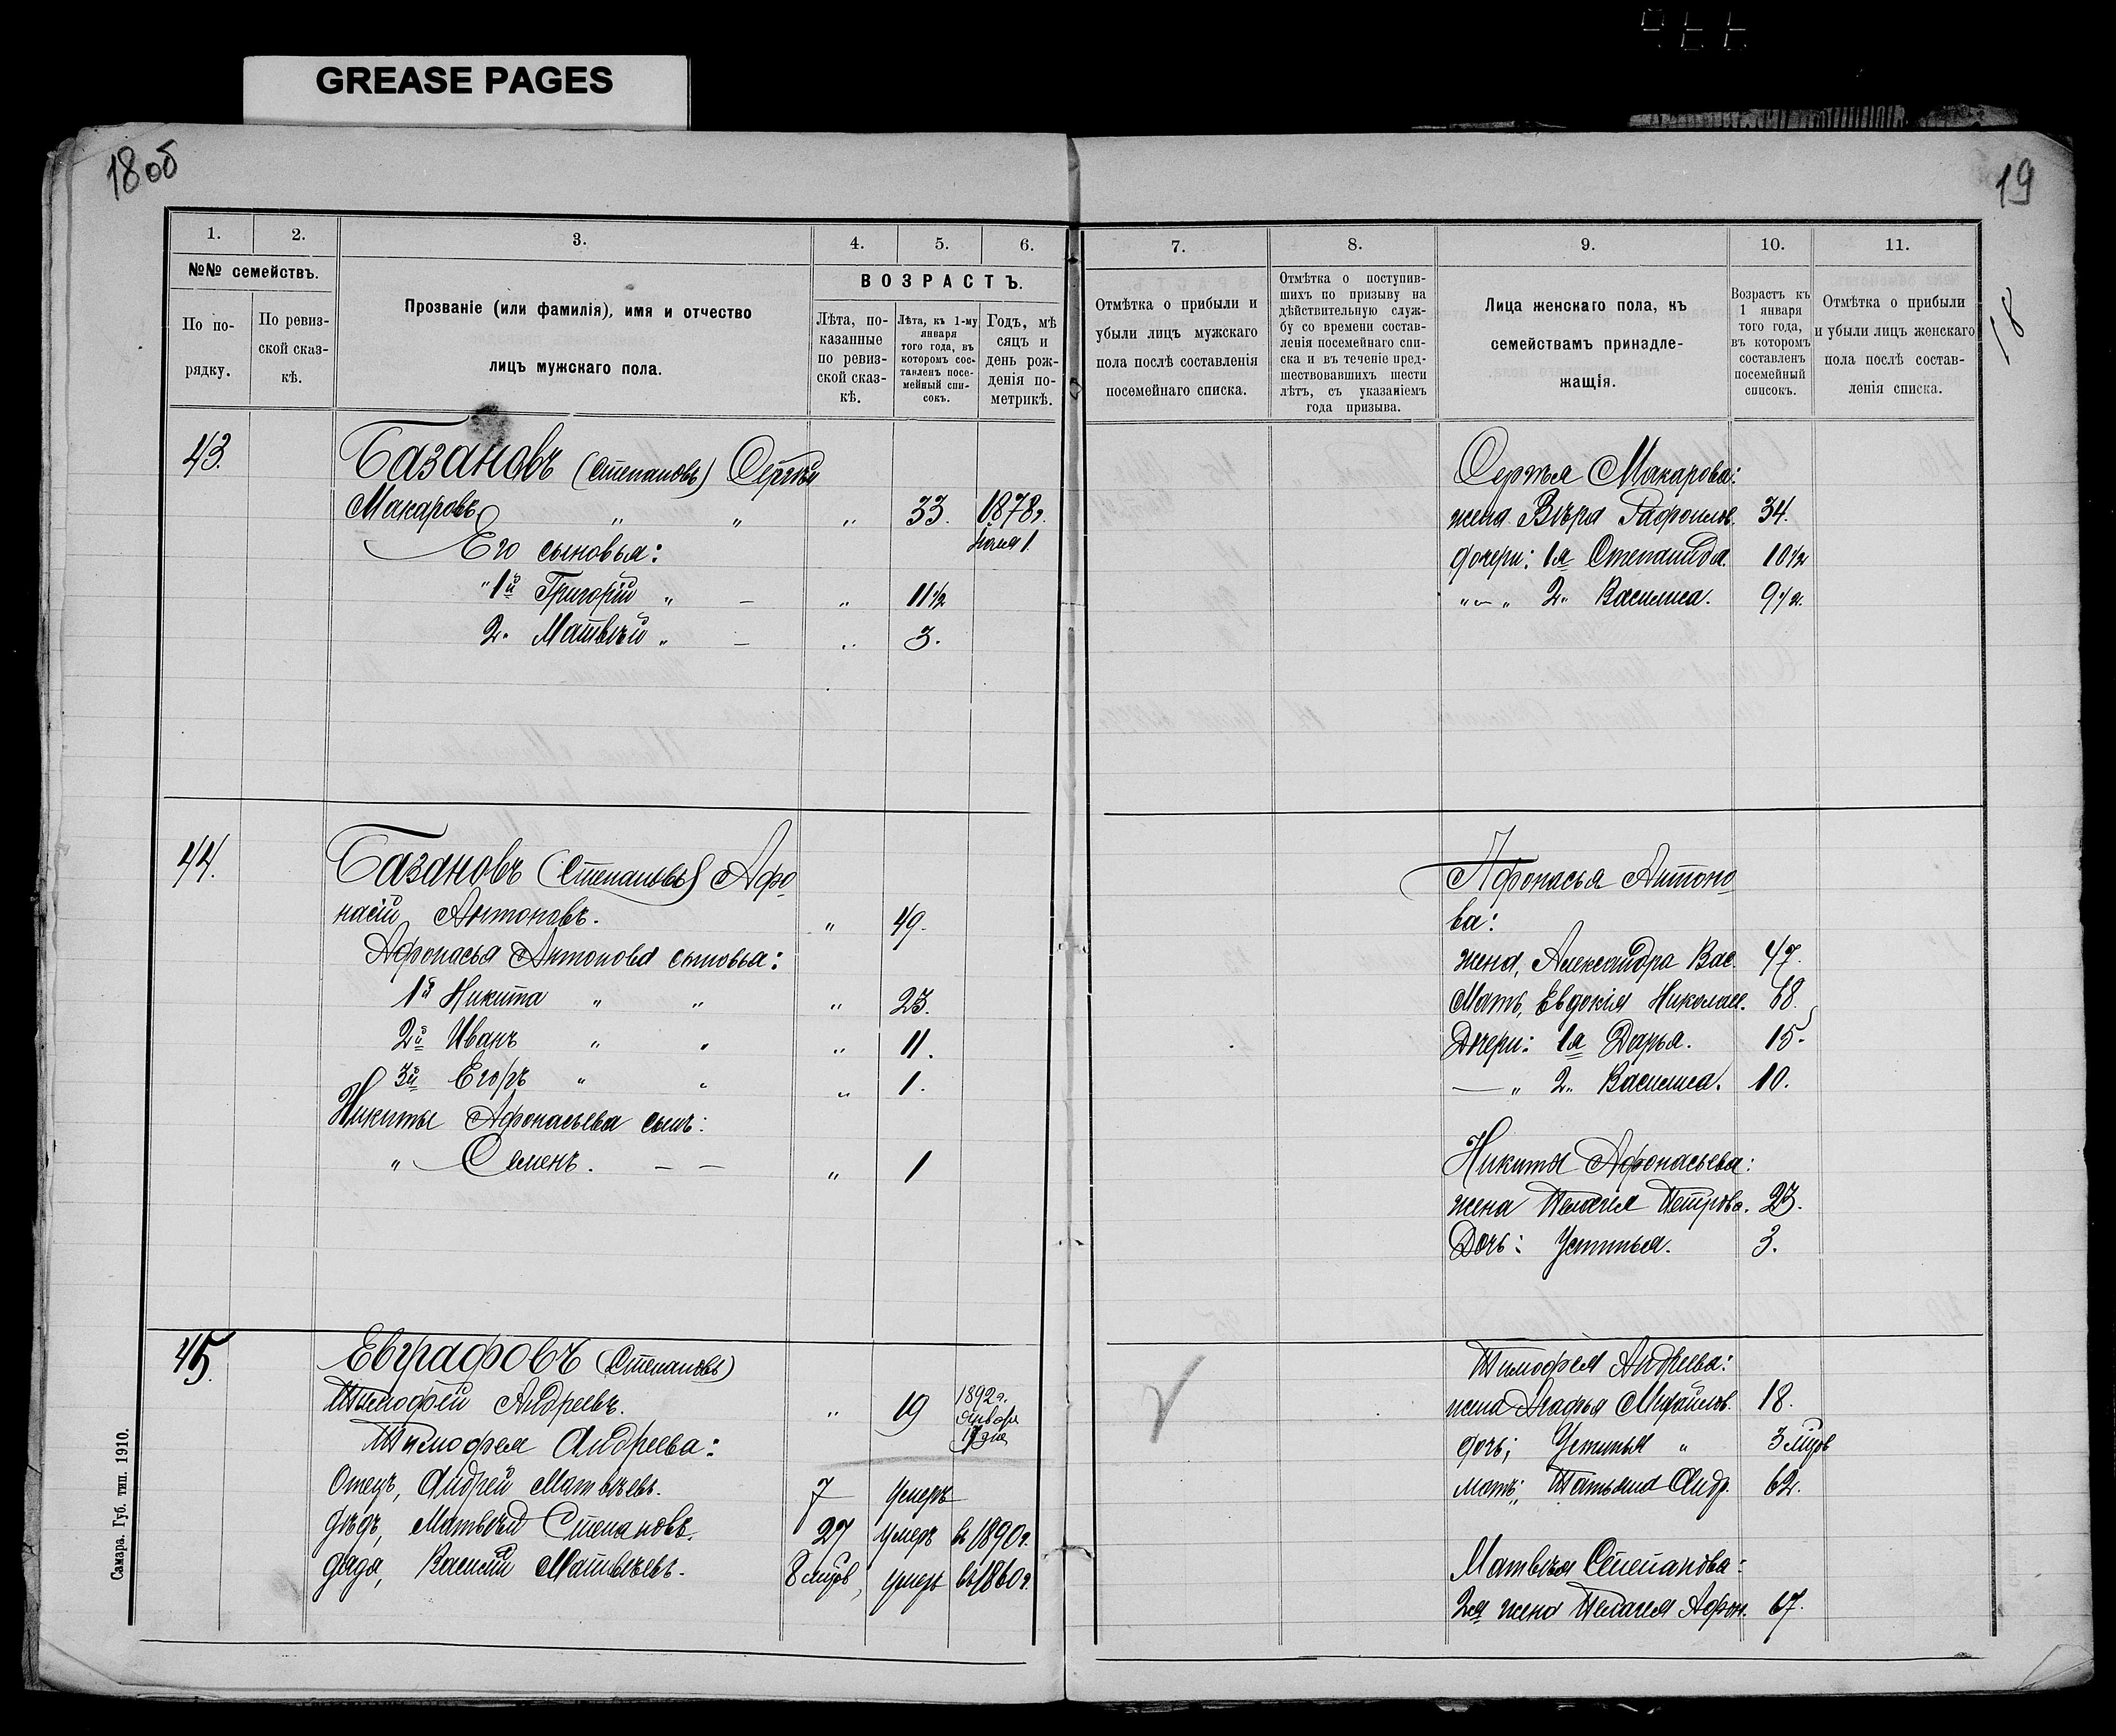 GREASE PAGES
18 об
19
18
1.
2.
3.
4.
5.
6.
№№ семействъ.
По по-
рядку.
По ревиз-
ской сказ-
кѣ.
Прозваніе (или фамилія), имя и отчество
лицъ мужскаго пола.
ВОЗРАСТЪ.
Лѣта, по-
казанные
по ревиз-
ской сказ-
кѣ.
Лѣта, къ 1-му
января
того года, въ
которомъ сос-
тавленъ посе-
мейный спи-
сокъ.
Годъ, мѣ
сяцъ и
день рож-
денія по-
метрикѣ.
7.
8.
9.
10.
11.
Отмѣтка о прибыли и
убыли лицъ мужскаго
пола послѣ составленія
посемейнаго списка.
Отмѣтка о поступив-
шихъ по призыву на
дѣйствительную служ-
бу со времени состав-
ленія посемейнаго спи-
ска и въ теченіе пред-
шествовавшихъ шести
лѣтъ, съ указаніемъ
года призыва.
Лица женскаго пола, къ
семействамъ принадле-
жащія.
Возрастъ къ
1 января
того года,
въ которомъ
составленъ
посемейный
списокъ.
Отмѣтка о прибыли
и убыли лицъ женскаго
пола послѣ состав-
ленія списка.
43.
Базановъ (Степановъ) Сергѣй
Макаровъ " " " 33. 1878г.
1
Его сыновья:
" 1й Григорій " — " 11½
2. Матвѣй " — " 3.
Сергѣя Макарова:
жена Вѣра 34.
дочери: 1я Степанида. 10½
" — " 2. Василиса. 9½.
44.
Базановъ (Степановъ) Афо
насій Антоновъ. " 49.
Афонасья Антонова сыновья:
1й Никита " " " 23.
2й Иванъ " " " 11.
3й Егоръ " " " 1.
Никиты Афонасьева сынъ:
" Семенъ. — — " 1
Афонасья Антоно
ва:
жена, Александра Вас. 47.
Мать, Евдокія Николае. 68.
Дочери: 1я Дарья. 15.
— " 2. Василиса. 10.
Никиты Афонасьева:
жена Пелагея Петрова. 23.
Дочь: Устинья. 3.
45.
Евграфовъ (Степановъ)
Тимофей Андреевъ. " 19 1892г.
января
Тимофея Андреева:
Отецъ, Андрей Матвѣевъ. 7 умеръ
дѣдъ, Матвѣй Степановъ. 27 умеръ въ 1890г.
дядя, Василій Матвѣевъ. 8 мѣсов, умеръ въ 1860г.
Тимофея Андреева:
жена Агафья Михайлов. 18.
дочь; Устинья " 3 мѣсов
мать; Татьяна Андр. 62.
Матвѣя Степанова:
2я жена Пелагея Афон. 67.
Самара. Губ. тип. 1910.